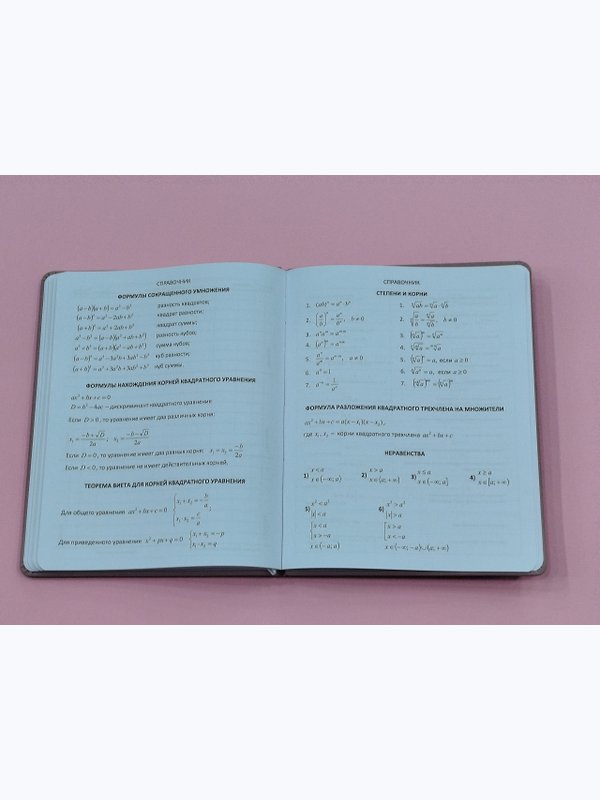 СПРАВОЧНИК
ФОРМУЛЫ СОКРАЩЕННОГО УМНОЖЕНИЯ
(a−b)(a+b)=a²−b² разность квадратов;
(a−b)²=a²−2ab+b² квадрат разности;
(a+b)²=a²+2ab+b² квадрат суммы;
a³−b³=(a−b)(a²+ab+b²) разность кубов;
a³+b³=(a+b)(a²−ab+b²) сумма кубов;
(a−b)³=a³−3a²b+3ab²−b³ куб разности;
(a+b)³=a³+3a²b+3ab²+b³ куб суммы.
ФОРМУЛЫ НАХОЖДЕНИЯ КОРНЕЙ КВАДРАТНОГО УРАВНЕНИЯ
ax²+bx+c=0
D=b²−4ac – дискриминант квадратного уравнения
Если D>0, то уравнение имеет два различных корня:
x₁=(−b+√D)/2a; x₂=(−b−√D)/2a
Если D=0, то уравнение имеет два равных корня: x₁=x₂=−b/2a
Если D<0, то уравнение не имеет действительных корней.
ТЕОРЕМА ВИЕТА ДЛЯ КОРНЕЙ КВАДРАТНОГО УРАВНЕНИЯ
Для общего уравнения ax²+bx+c=0 {x₁+x₂=−b/a; x₁·x₂=c/a
Для приведенного уравнения x²+px+q=0 {x₁+x₂=−p x₁·x₂=q
СПРАВОЧНИК
СТЕПЕНИ И КОРНИ
1. (ab)ⁿ=aⁿ·bⁿ
2. (a/b)ⁿ=aⁿ/bⁿ, b≠0
3.
4.
5. a≠0
6. a⁰=1
7.
1. ⁿ√ab=ⁿ√a·ⁿ√b
2. ⁿ√(a/b)=ⁿ√a/ⁿ√b, b≠0
3.
4.
5. =a, если a≥0
6. =a, если a≥0
7.
ФОРМУЛА РАЗЛОЖЕНИЯ КВАДРАТНОГО ТРЕХЧЛЕНА НА МНОЖИТЕЛИ
ax²+bx+c=a(x−x₁)(x−x₂),
где x₁, x₂ – корни квадратного трехчлена ax²+bx+c
НЕРАВЕНСТВА
1) x<a x∈(−∞;a)
2) x>a x∈(a;+∞)
3) x≤a x∈(−∞;a]
4) x≥a x∈[a;+∞)
5) x²<a²
|x|<a
{x<a
x>−a
x∈(−a;a)
6) x²>a²
|x|>a
[x>a
x<−a
x∈(−∞;−a)∪(a;+∞)